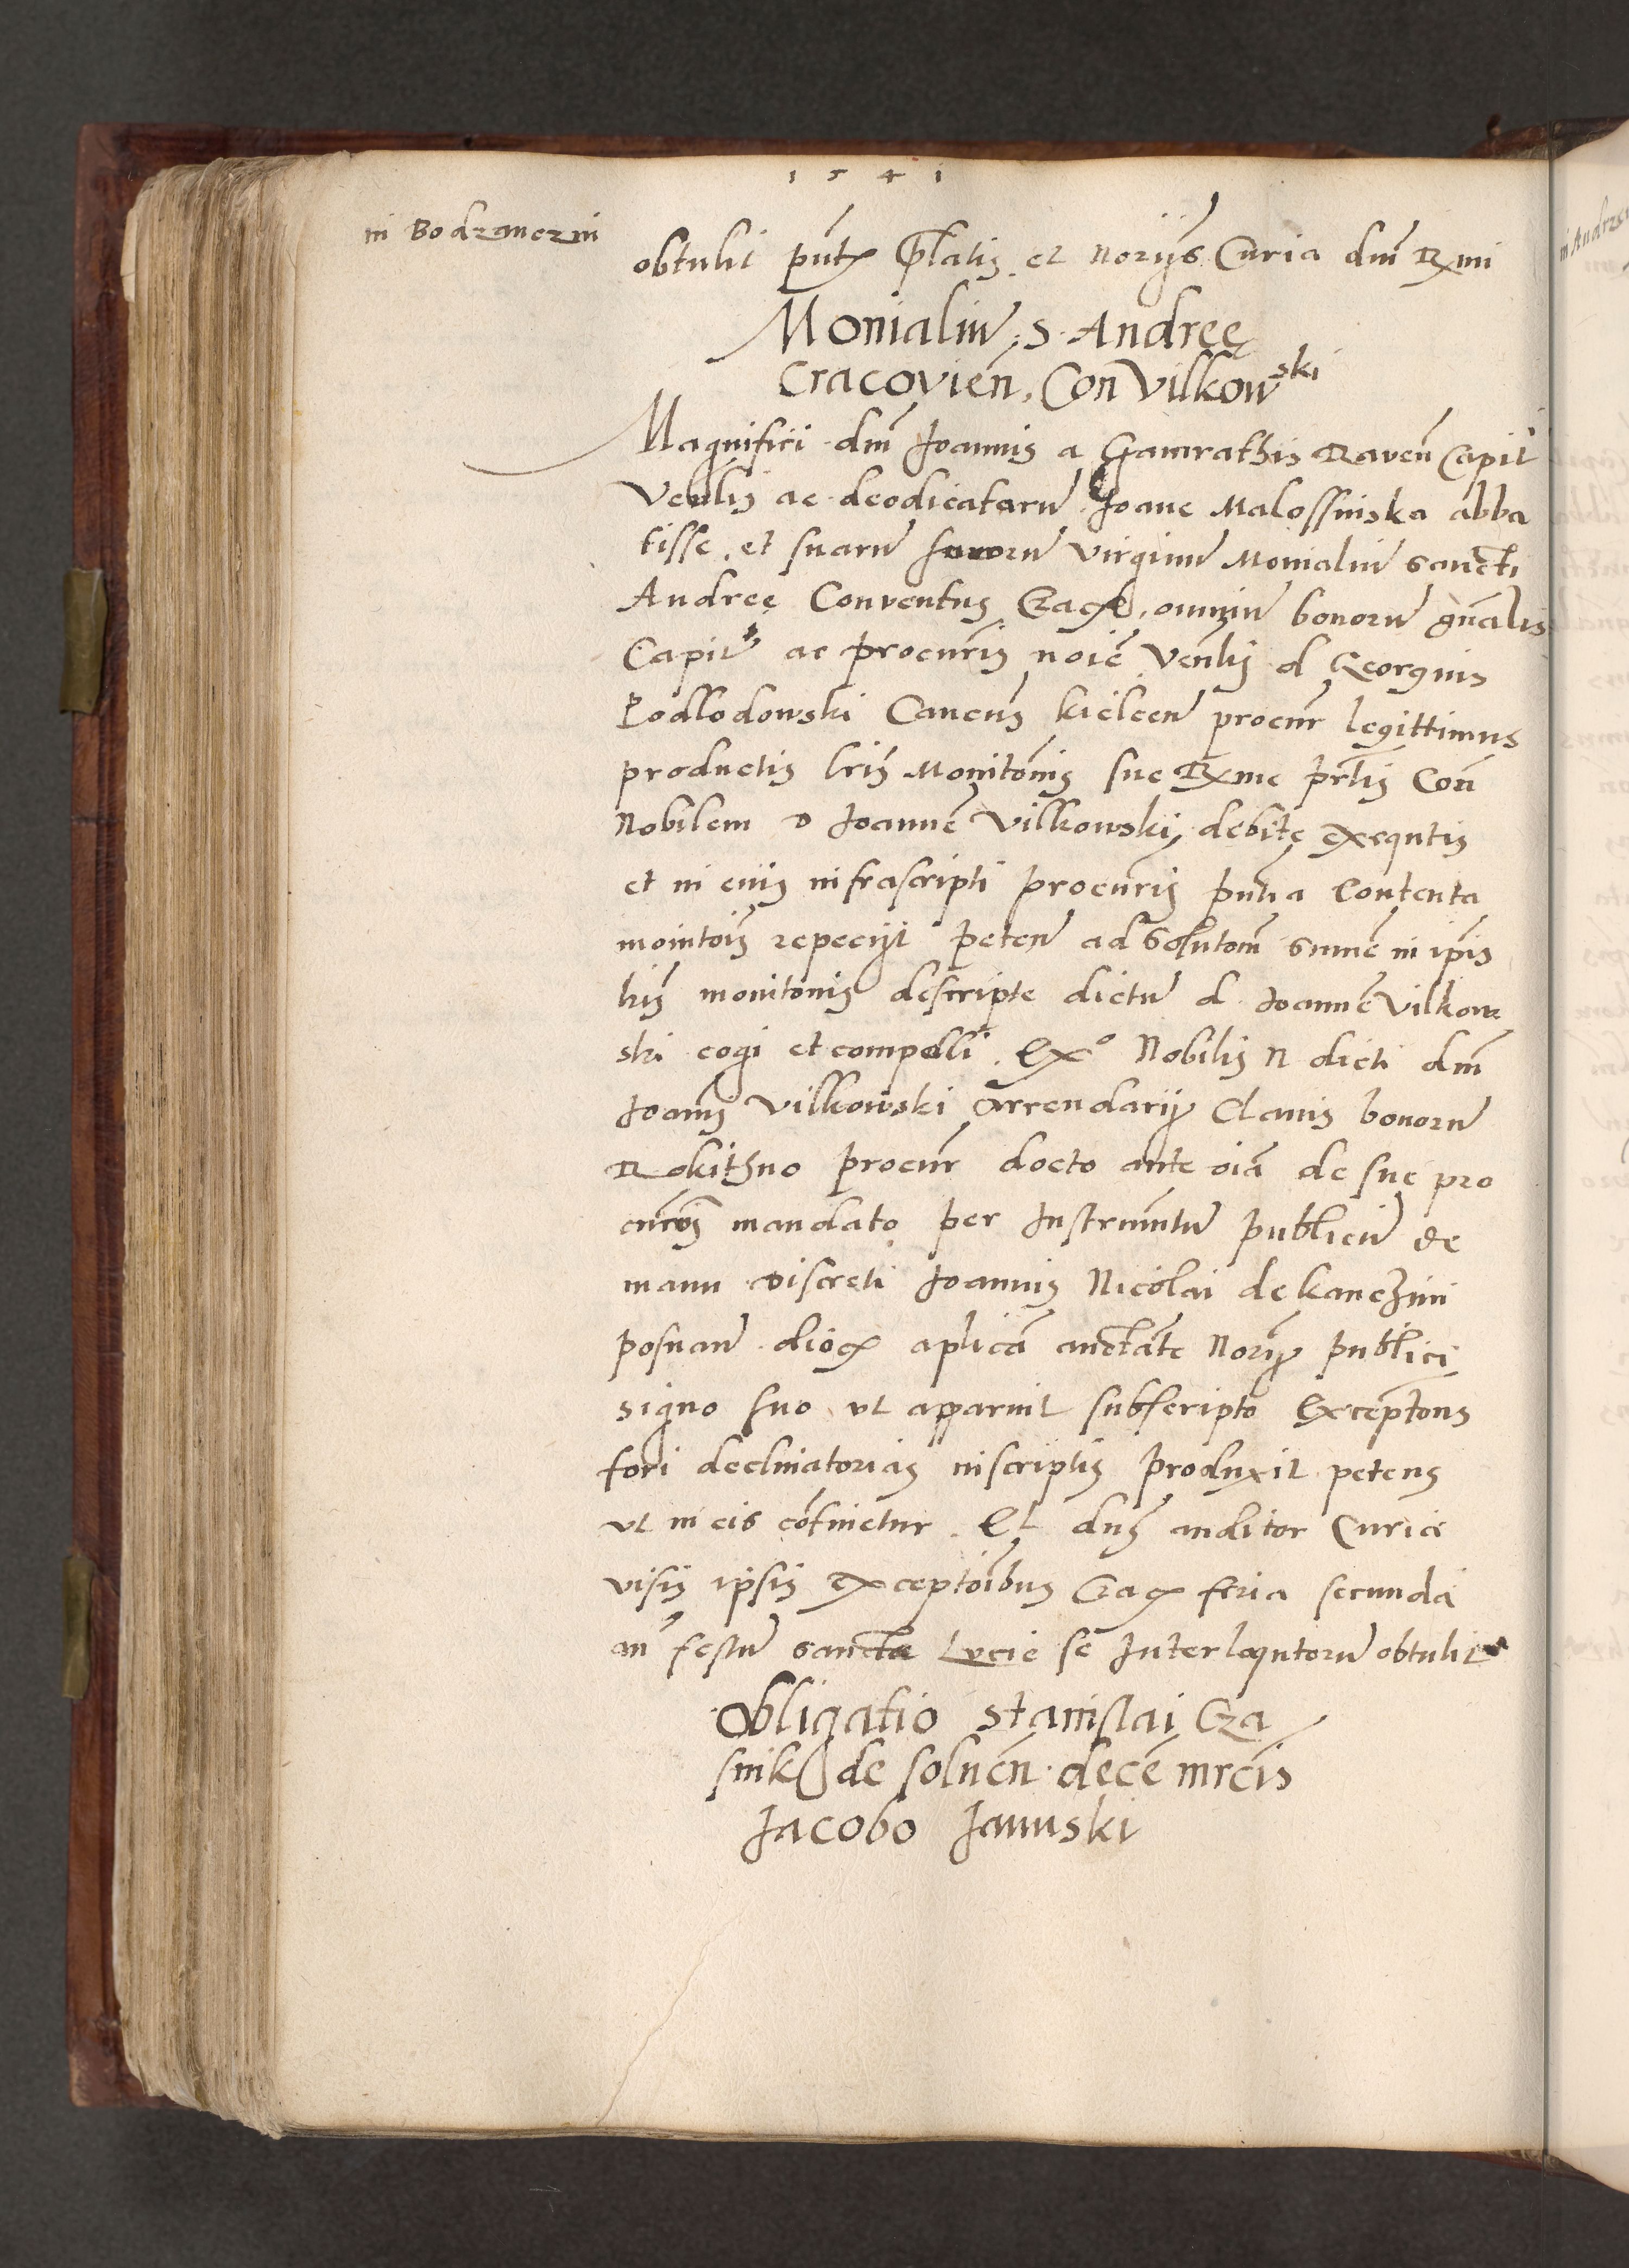 1541
in Bodzanczin
obtulit pn̄t Pͬlatis et Norijs Curia dn̄i Rmi
Monialiū S. Andreę
Cracovien̄, Con Vilkowski
Magnifici dn̄i Joannis a Gamrathis Raven̄ Capit̄
Veñlis ac deodicatarū Joanē Malossinska abba
tisse, et suarū sororū virginū Monialiū sancti
Andreę Conventus Crac omniū bonorū gnālis
Capit̄ ac procuris noiē Venlis d Georgius
Podlodowski Cancus kielcen̄ procur legittimus
productis lris Monitoris sue Rme prtis Con
Nobilem D Joannē Vilkowski debite exequtis
et in eius infrascripti procuris pn̄tia contenta
monitois repecijt peten̄ ad Solutom̄ sumē in ipis
lris monitoriis descripte dictū d. Joannē Vilkow
ski cogi et compelli. Exº Nobilis N dicti dn̄i
Joannis Vilkowski Arrendarij Clavis bonorū
Rokithno procur docto ante oīa de sue pro
curois mandato per Instrumtū publicū de
manu discreti Joannis Nicolai de kanczini
posnan̄ dioc aplica auctāte Norij publici
signo suo ut apparuit subscripto Exceptons
fori declinatorias inscriptis produxit petens
ut in eis cōfirietur. Et dn̄s auditor Curie
visis ipsis exceptoibus Crac feria secunda
an̄ festū sancte Lucie se Interloqutorū obtulit
Obligatio Stanislai Cza
snik de soluen̄ decē mrcis
Jacobo Januski